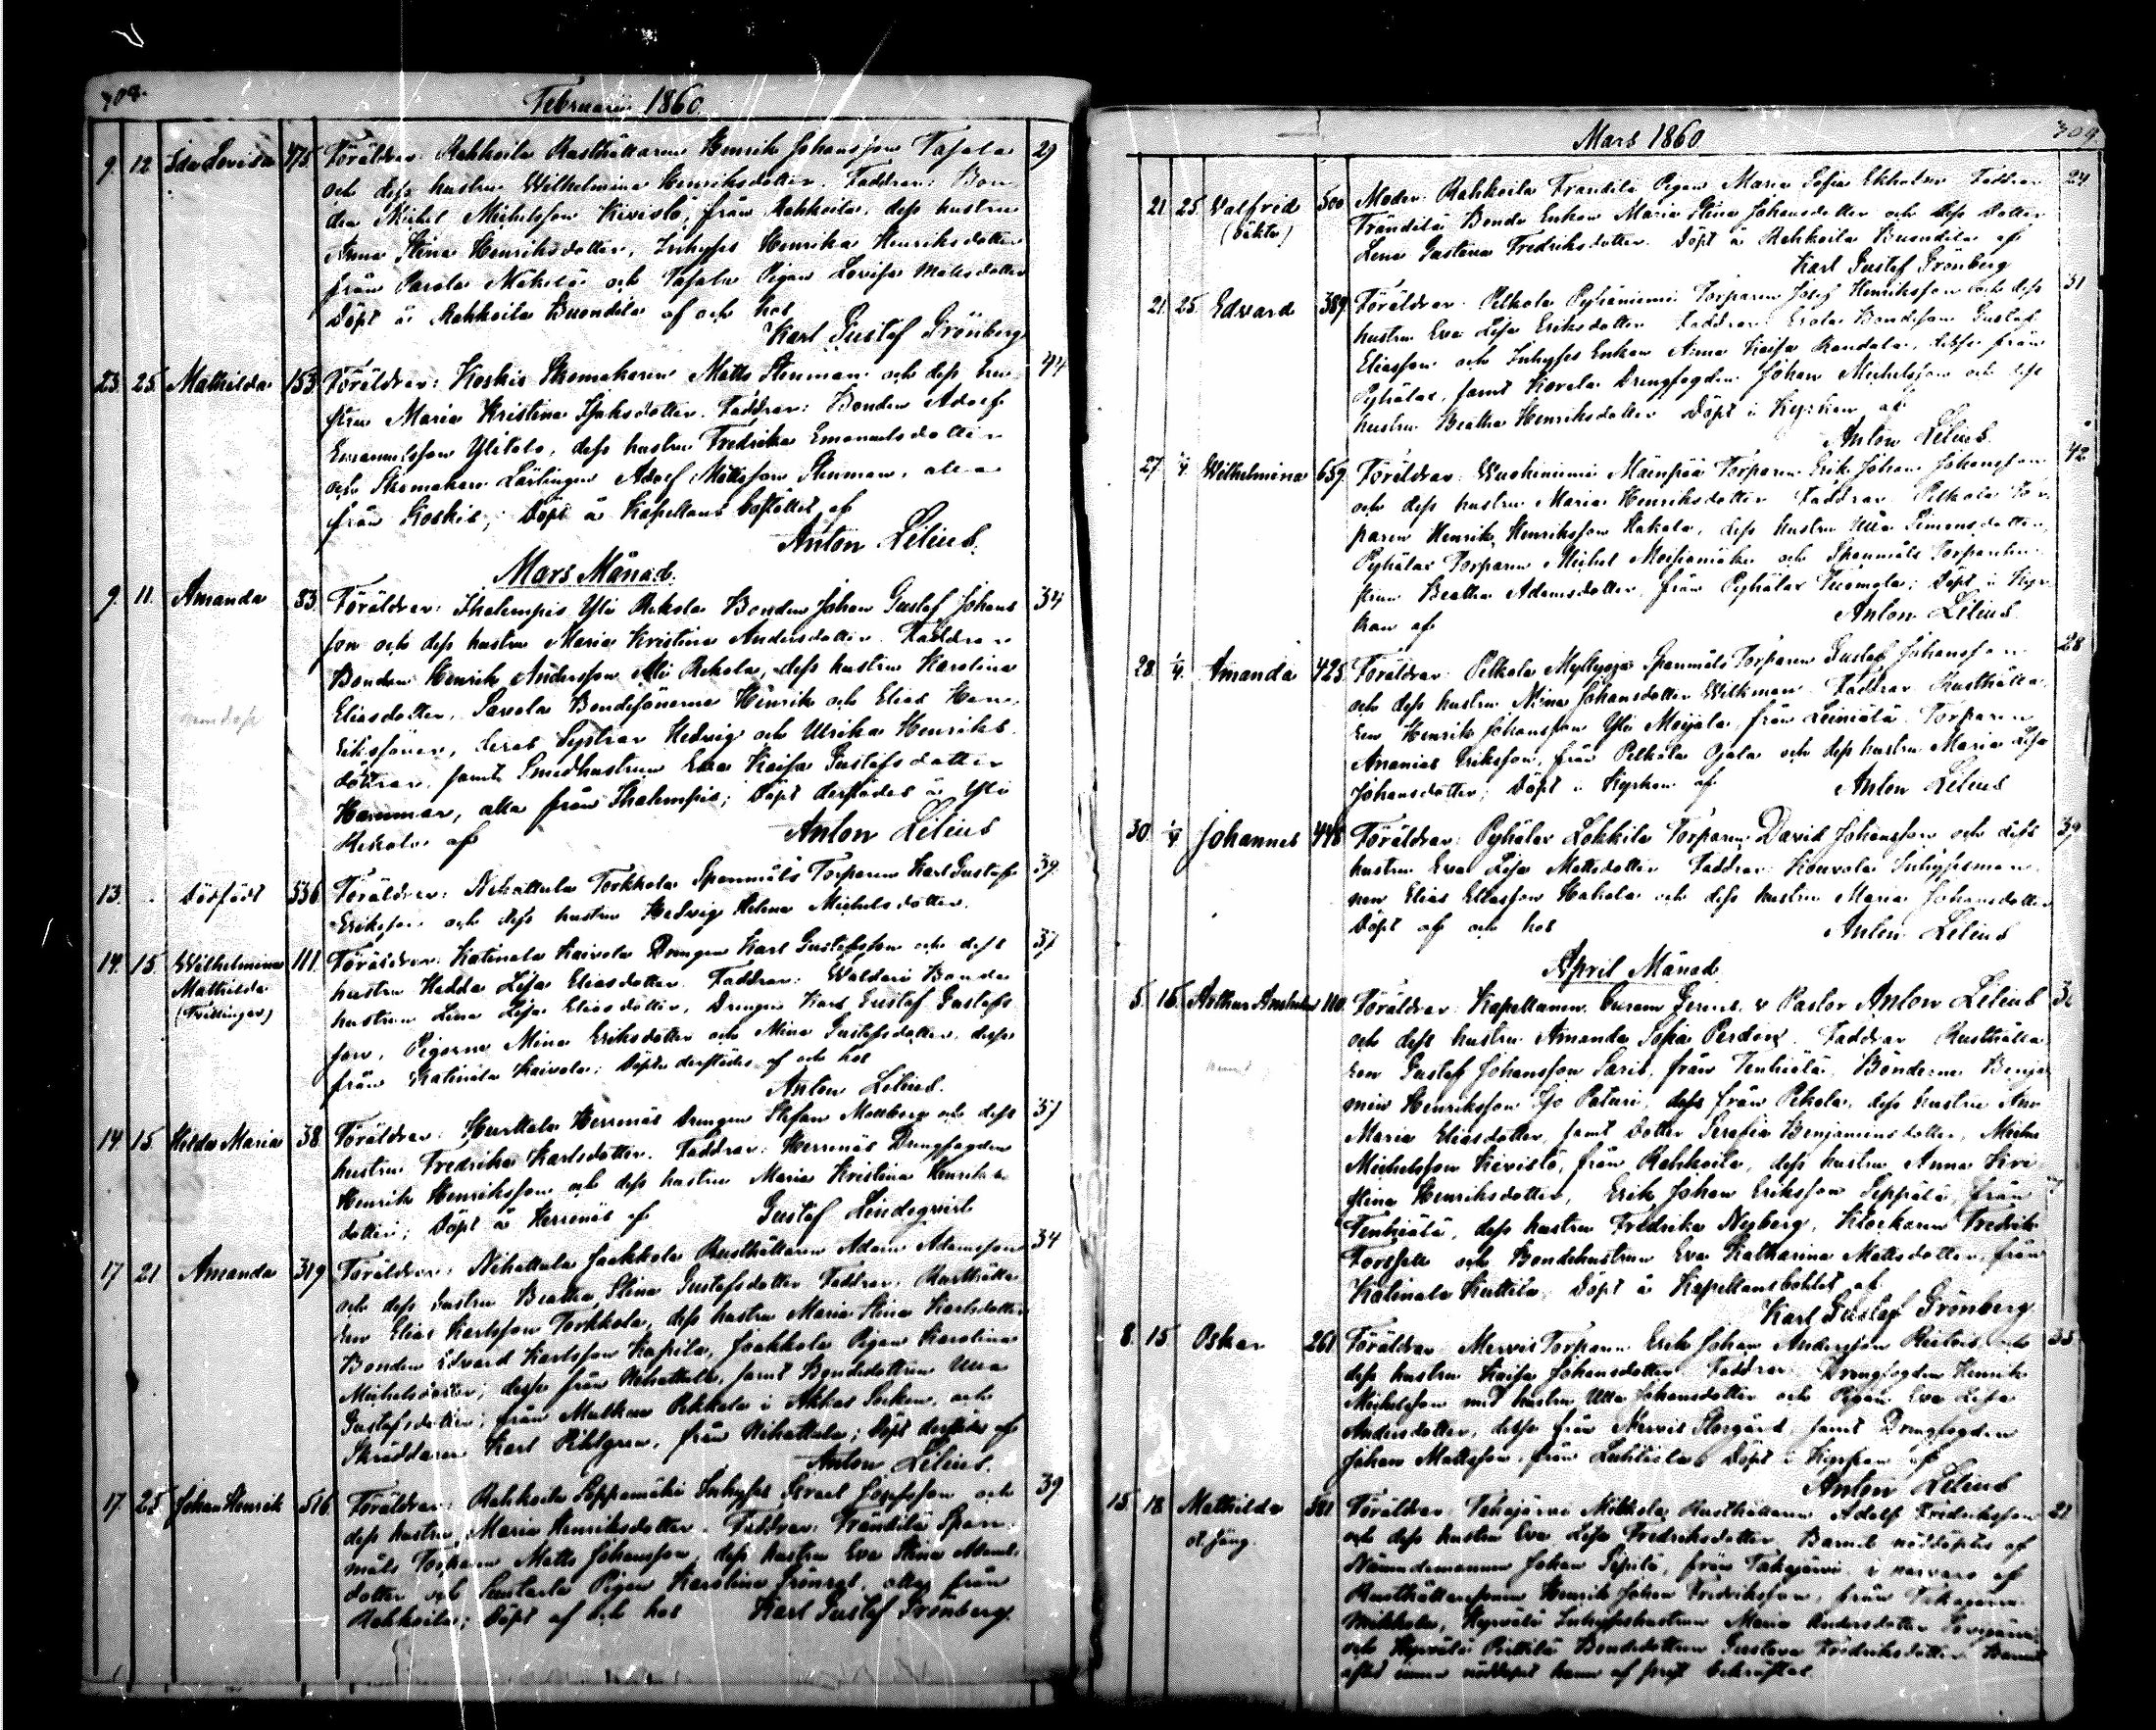 308.
Februarii 1860.
9. 12. Ida Lovisa 475. Föräldrar: Rahkoila Rusthållaren Henrik Johansson Tafala 29
och dess hustru Wilhelmina Henriksdotter. Faddrar: Bon
den Michel Michelsson Kivistö, från Rahkoila, dess hustru
Anna Stina Henriksdotter, Inhyses Henrika Henriksdotter
från Parola Mäkelä och Tafala Pigan Lovisa Mattsdotter
Döpt å Rahkoila Buondila af och hos
Karl Gustaf Grönberg
23. 25. Mathilda 153. Föräldrar: Koskis Skomakaren Matts Stenman och dess hu 44
stru Maria Kristina Isaksdotter. Faddrar: Bonden Adolf
Emanuelsson Ylitalo, dess hustru Fredrika Emanuelsdotter
och Skomakare Lärlingen Adolf Mattsson Stenman, alla
från Koskis; Döpt å Kapellans bostället af
Anton Lilius.
Mars Månad.
9. 11. Amanda 53. Föräldrar: Ihalempis Yli Rekola Bonden Johan Gustaf Johans 34
son och dess hustru Maria Kristina Andersdotter. Faddrar
Bonden Henrik Andersson Ali Rekola, dess hustru Karolina
Eliasdotter, Bondesönerne Henrik och Elias Hen
riksöner, deras Systrar Hedvig och Ulrika Henriks
döttrar, samt Smedhustrun Eva Kaisa Gustafsdotter
Hammar, alla från Ihalempis; Döpt derstädes å Yli
Rekola af Anton Lilius
13. Dödfödt 536. Föräldrar: Nihattula Torkkola Spanmåls Torparen Karl Gustaf 39.
Eriksson och dess hustru Hedvig Helena Michelsdotter.
14. 15. Wilhelmina 111. Föräldrar: Katinala Kaivola Drengen Karl Gustafsson och dess 37
Mathilda hustru Hedda Lisa Eliasdotter. Faddrar: Bonde
(Tvillingar) hustrun Lena Lisa Eliasdotter, Drengen Karl Gustaf Gustafs
son, Pigorne Mina Eriksdotter och Mina Gustafsdotter, desse
från Katinala Kaivola; Döpte derstädes af och hos
Anton Lilius.
14. 15. Hilda Maria 38. Föräldrar: Hurttala Herrenäs Drengen Stefan Mossberg och dess 37
hustru Fredrika Karlsdotter. Faddrar: Herrenäs Drengfogden
Henrik Henriksson och dess hustru Maria Kristina Henriks
dotter; Döpt å Herrenäs af Gustaf Lindeqvist
17. 21. Amanda 319. Föräldrar: Nihattula Jaakkola Rusthållaren Adam Adamsson 34
och dess hustru Beatha Stina Gustafsdotter Faddrar: Rusthålla
ren Elias Karlsson Torkkola, dess hustru Maria Stina Karlsdotter
Bonden Edvard Karlsson Kapila, Jaakkola Pigan Karolina
Michelsdotter; desse från Nihattula, samt Bondedottren Ulla
Gustafsdotter; från Pekkola i Akkas Socken, och
Skräddaren Karl Pihlgren, från Nihattula; Döpt derstädes af
Anton Lilius.
17. 25. Johan Henrik 516. Föräldrar: Rahkoila Seppämäki Inhyses Israel Josefsson och 39
dess hustru Maria Henriksdotter. Faddrar: Frändilä Span
måls Torparen Matts Johansson, dess hustru Eva Stina
dotter och Pigan Karolina Grönros, alla från
Rahkoila; Döpt af och hos Karl Gustaf Grönberg.
309
Mars 1860
21. 25. Valfrid 500 Moder: Rahkoila Frändilä Pigan Maria Sofia Ekholm Faddrar 24
(oäkta) Frändilä Bonde Enkan Maria Stina Johansdotter och dess dotter
Lena Gustava Fredriksdotter. Döpt å Rahkoila Buondila af
Karl Gustaf Grönberg
21. 25. Edvard 389. Föräldrar: Pelkola Pyhäniemi Torparen Josef Henriksson och dess 31
hustru Eva Lisa Eriksdotter Faddrar: Erola Bondeson Gustaf
Eliasson och Inhyses Enkan Anna Kaisa desse från
Pyhälax, samt Karola Drengfogden Johan Michelsson och dess
hustru Beatha Henriksdotter Döpt i Kyrkan af
Anton Lilius.
27. 1/4. Wilhelmina 659. Föräldrar: Wuohiniemi Mäenpää Torparen Erik Johan Johansson 42
och dess hustru Maria Henriksdotter Faddrar: Pelkola Tor
paren Henrik Henriksson Hakala, dess hustru Ulla Simonsdotter,
Pyhälax Torparen Michel och Spanmåls Torparehu
strun Beatha Adamsdotter, från Pyhälax Döpt i Kyr
kan af Anton Lilius.
28. 1/4. Amanda 425. Föräldrar: Pelkola Myllyoja Spanmåls Torparen Gustaf Johansson 28
och dess hustru Mina Johansdotter Wilkman Faddrar Rusthålla
ren Henrik Johansson Yli Moijala, från Leiniälä Torparen
Ananias Eriksson, från Pelkola Ojala och dess hustru Maria Lisa
Johansdotter; Döpt i Kyrkan af Anton Lilius
30. 1/4. Johannes 448. Föräldrar: Pyhälax Lokkila Torparen David Johansson och dess 39
hustru Eva Lisa Mattsdotter Faddrar: Konvola Inhysesman
nen Elias Eliasson Hakala och dess hustru Maria Johansdotter
Döpt af och hos Anton Lilius
April Månad
5. 15. Arthur 110. Föräldrar: Kapellanen, v Pastor Anton Lilius
och dess hustru Amanda Sofia Faddrar Rusthålla
ren Gustaf Johansson Saris, från Tenhiälä, Bönderne Benja
min Henriksson Iso Paturi, från Pekola, dess hustru
Maria Eliasdotter, samt dotter Serafia Benjaminsdotter,
Michelsson Kivistö, från Rahkoila, dess hustru Anna Kri
stina Henriksdotter, Erik Johan Eriksson Seppälä, från
Tenhiälä, dess hustru Fredrika Nyberg, Klockaren Fredrik
Forssell och Bondehustrun Eva Katharina Mattsdotter, från
Katinala Kuttila; Döpt å Kapellansbohlet af
Karl Gustaf Grönberg.
8. 15. Oskar 261. Föräldrar: Mervis Torparen Erik Johan Andersson och 33
dess hustru Kaisa Johansdotter Faddrar: Drengfogden Henrik
Michelsson med hustru Ulla Johansdotter och Pigan Eva Lisa
Andersdotter, desse från Mervis Storgård, samt Drengfogden
Johan Mattsson, från Luhtiala Döpt i Kyrkan af
Anton Lilius
15. 18. Mathilda 381. Föräldrar: Takajärvi Mikkola Rusthållaren Adolf Fredriksson 21
och dess hustru Eva Lisa Fredriksdotter Barnet nöddöptes af
Nämndemannen Johan Sipilä, från Takajärvi i närvaro af
Rusthållaresonen Henrik Johan Fredriksson, från Takajärvi
Mikkola, Hyrvälä Inhyseshustrun Maria Andersdotter
och Hyrvälä Prittilä Bondedottren Gustava Fredriksdotter Barnet